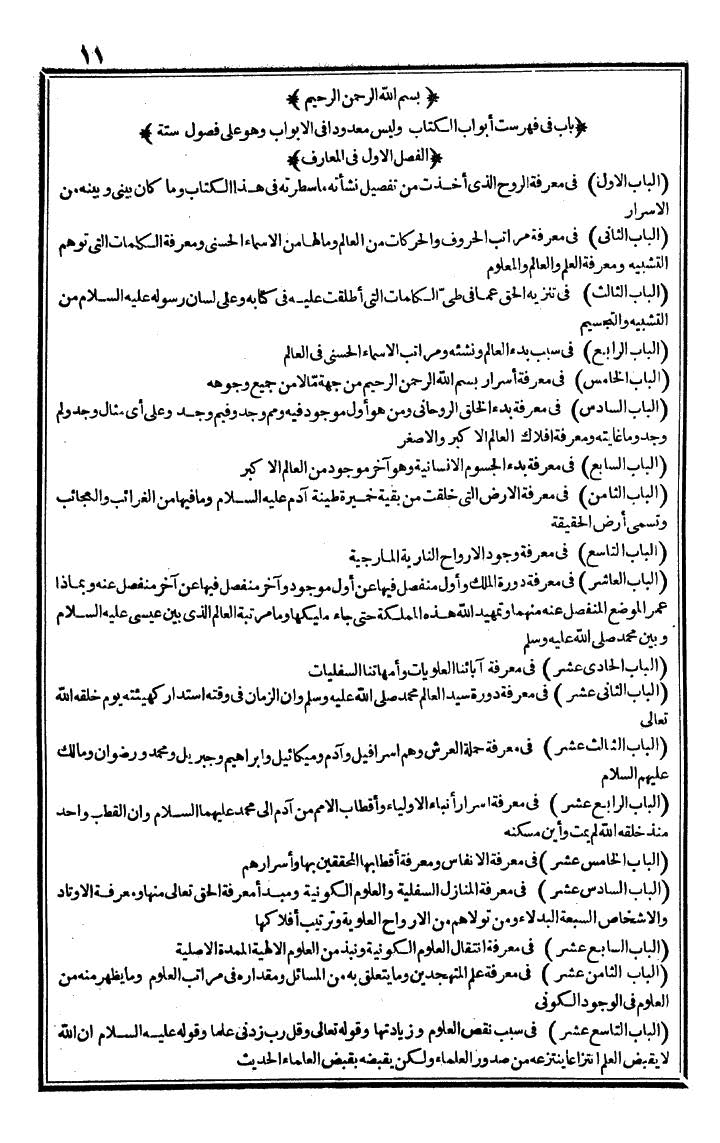 ١١
﴿ بسم الله الرحمن الرحيم ﴾
﴿باب فى فهرست أبواب الكتاب وليس معدودا فى الابواب وهو على فصول ستة ﴾
﴿الفصل الاول فى المعارف﴾
(الباب الاول) فى معرفة الروح الذى أخذت من تفصيل نشأته ماسطرته فى هذا الكتاب وما كان بينى وبينه من
الاسرار
(الباب الثانى) فى معرفة مراتب الحروف والحركات من العالم ومالها من الاسماء الحسنى ومعرفة الكلمات التى توهم
التشبيه ومعرفة العلم والعالم والمعلوم
(الباب الثالث) فى تنزيه الحق عما فى طىّ الكلمات التى أطلقت عليه فى كتابه وعلى لسان رسوله عليه السلام من
التشبيه والتجسيم
(الباب الرابع) فى سبب بدء العالم ونشئه ومراتب الاسماء الحسنى فى العالم
(الباب الخامس) فى معرفة أسرار بسم الله الرحمن الرحيم من جهة مّا لا من جميع وجوهه
(الباب السادس) فى معرفة بدء الخلق الروحانى ومن هو أول موجود فيه ومم وجد وفيم وجد وعلى أى مثال وجد ولم
وجد وما غايته ومعرفة افلاك العالم الاكبر والاصغر
(الباب السابع) فى معرفة بدء الجسوم الانسانية وهو آخر موجود من العالم الاكبر
(الباب الثامن) فى معرفة الارض التى خلقت من بقية خميرة طينة آدم عليه السلام وما فيها من الغرائب والعجائب
وتسمى أرض الحقيقة
(الباب التاسع) فى معرفة وجود الارواح النارية المارجية
(الباب العاشر) فى معرفة دورة الملك وأول منفصل فيها عن أول موجود وآخر منفصل فيها عن آخر منفصل عنه وبماذا
عمر الموضع المنفصل عنه منهما وتمهيد الله هذه المملكة حتى جاء مليكها وما مرتبة العالم الذى بين عيسى عليه السلام
وبين محمد صلى الله عليه وسلم
(الباب الحادى عشر) فى معرفة آبائنا العلويات وأمهاتنا السفليات
(الباب الثانى عشر) فى معرفة دورة سيد العالم محمد صلى الله عليه وسلم وان الزمان فى وقته استدار كهيئته يوم خلقه الله
تعالى
(الباب الثالث عشر) فى معرفة حملة العرش وهم اسرافيل وآدم وميكائيل وابراهيم وجبريل ومحمد ورضوان ومالك
عليهم السلام
(الباب الرابع عشر) فى معرفة اسرار أنباء الاولياء وأقطاب الامم من آدم الى محمد عليهما السلام وان القطب واحد
منذ خلقه الله لم يمت وأين مسكنه
(الباب الخامس عشر) فى معرفة الانفاس ومعرفة أقطابها المحققين بها وأسرارهم
(الباب السادس عشر) فى معرفة المنازل السفلية والعلوم الكونية ومبدأ معرفة الحق تعالى منها ومعرفة الاوتاد
والاشخاص السبعة البدلاء ومن تولاهم من الارواح العلوية وترتيب أفلاكها
(الباب السابع عشر) فى معرفة انتقال العلوم الكونية ونبذ من العلوم الالهية الممدة الاصلية
(الباب الثامن عشر) فى معرفة علم المتهجدين وما يتعلق به من المسائل ومقداره فى مراتب العلوم وما يظهر منه من
العلوم فى الوجود الكونى
(الباب التاسع عشر) فى سبب نقص العلوم وزيادتها وقوله تعالى وقل رب زدنى علما وقوله عليه السلام ان الله
لا يقبض العلم انتزاعا ينتزعه من صدور العلماء ولكن يقبضه بقبض العلماء الحديث